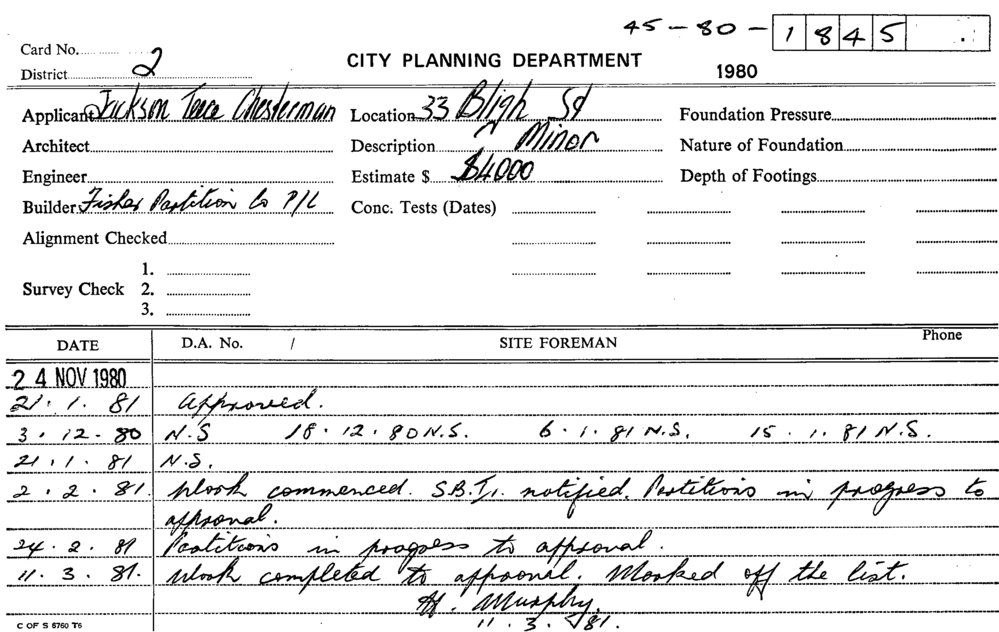 45-80-1845
Card No.
District 2
CITY PLANNING DEPARTMENT
1980
Applicant Jackson Teece Chesterman
Location 33 Bligh St
Foundation Pressure
Architect
Description Minor
Nature of Foundation
Engineer
Estimate $ $4000
Depth of Footings
Builder Fisher Partition Co P/L
Conc. Tests (Dates)
Alignment Checked
1.
Survey Check 2.
3.
DATE D.A. No. / SITE FOREMAN Phone
24 NOV 1980
21.1.81 Approved.
3.12.80 N.S 18.12.80 N.S. 6.1.81 N.S. 15.1.81 N.S.
21.1.81 N.S.
2.2.81. Work commenced. notified. Partitions in progress to
approval.
24.2.81 Partitions in progress to approval.
11.3.81. Work completed to approval. Marked off the list.
Murphy.
11.3.81.
C OF S 6760 T6